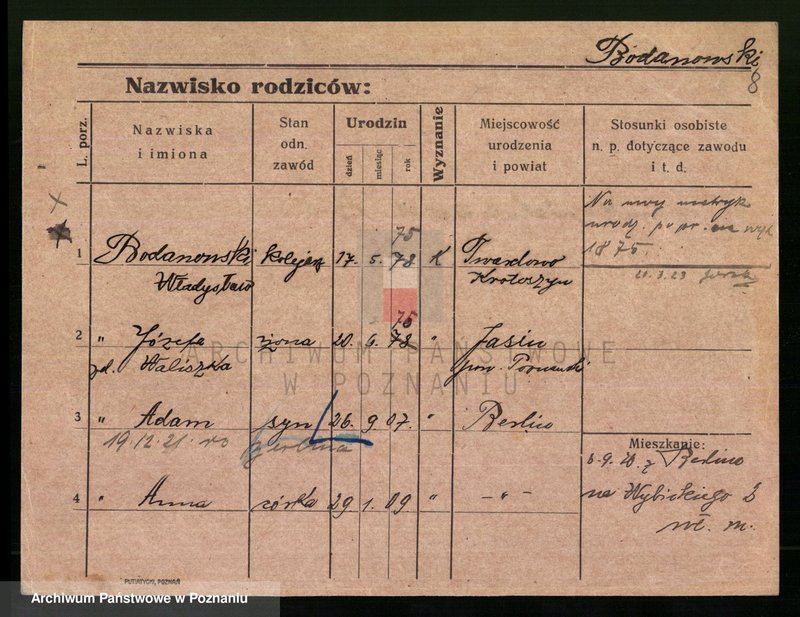 Bodanowski
8
Nazwisko rodziców:
L. porz.
Nazwiska
i imiona
Stan
odn.
zawód
Urodzin
dzień
miesiąc
rok
Wyznanie
Miejscowość
urodzenia
i powiat
Stosunki osobiste
n. p. dotyczące zawodu
i t. d.
x
Na
urodz. popr. na
1875.
21.3.23
75
1 Bodanowski kolejarz 17. 5. 78 K Twardowo
Władysław Krotoszyn
75
2 " Józefa żona 20. 6. 78 " Jasin
zd. Waliszka pow. Poznański
ARCHIWUM PAŃSTWOWE
W POZNANIU
3 " Adam syn 26. 9 07. " Berlin
19.12.21.
Mieszkanie:
6.9.20. z Berlina
na Wybickiego 3
4 " Anna córka 29 1. 09 " - " -
PUTIATYCKI, POZNAŃ
Archiwum Państwowe w Poznaniu